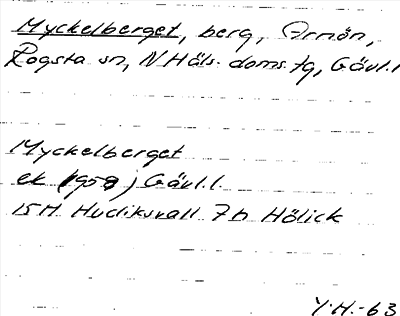 Myckelberget, berg, Arnön,
Rogsta sn, N Häls. doms. tg, Gävl. l
Myckelberget
ek (1958) Gävl. l.
15H Hudiksvall 7b Hölick
Y.H.-63